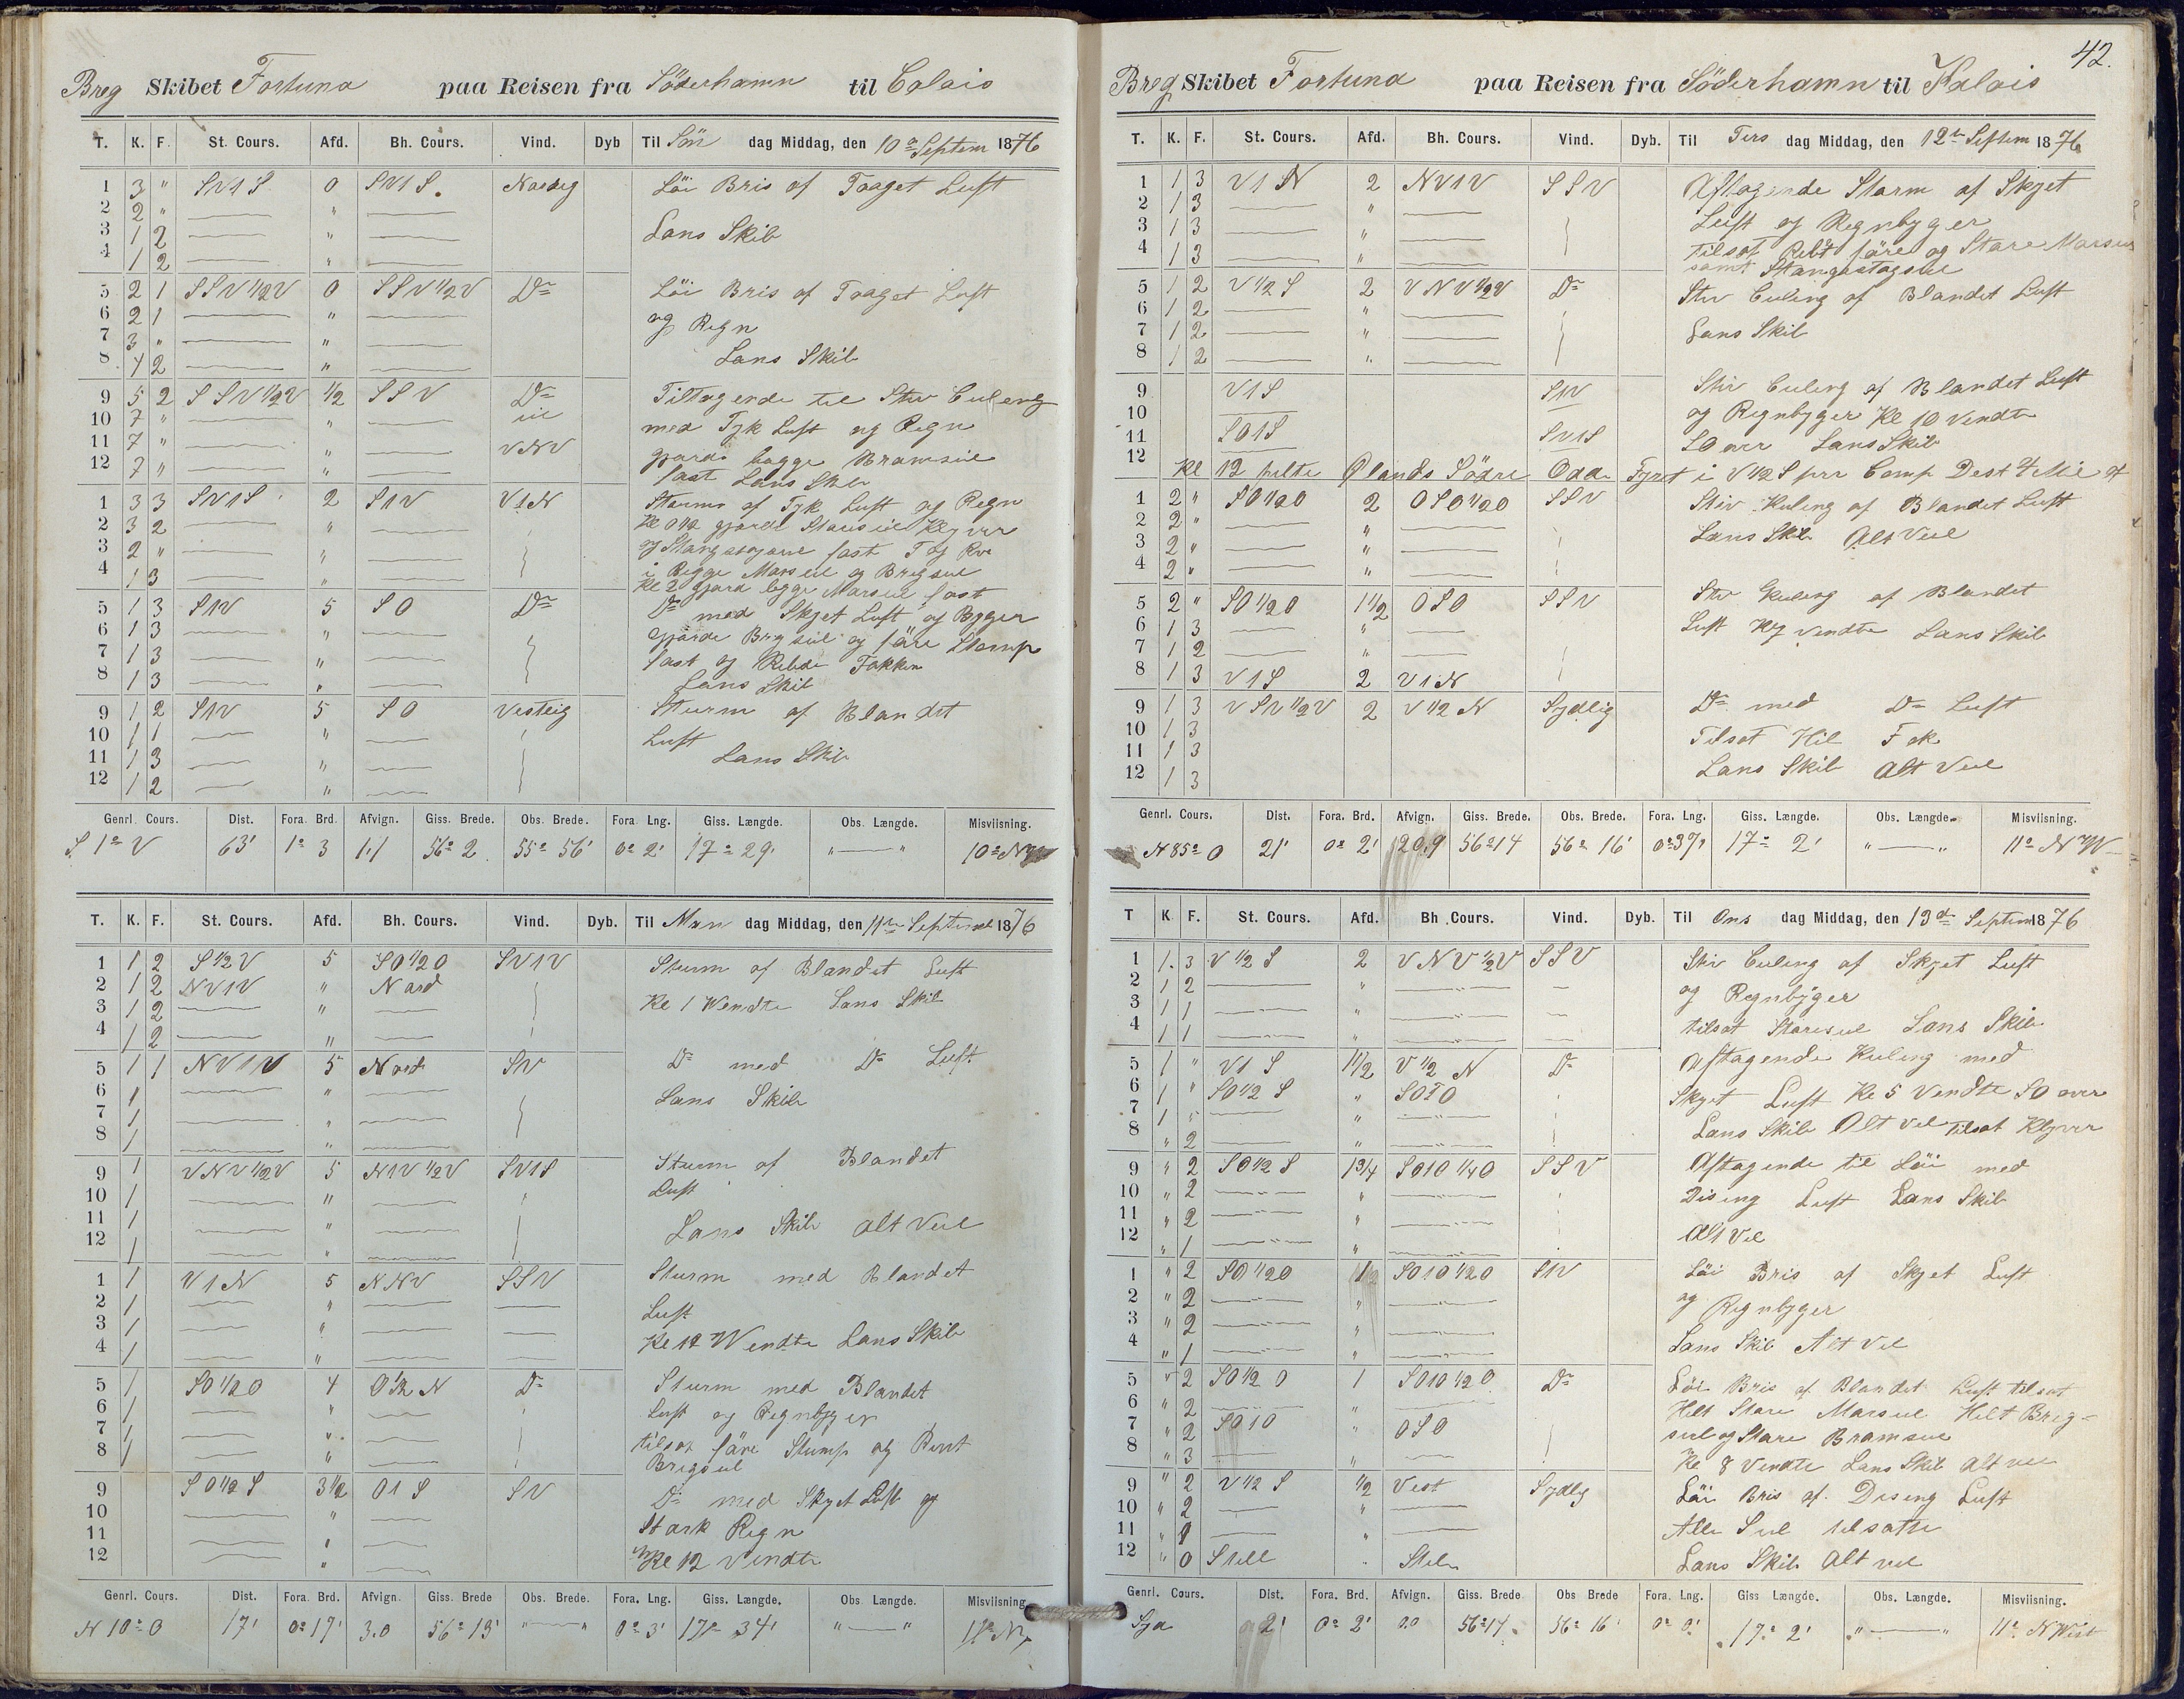 Breg Skibet Fortuna paa Reisen fra Söderhamn til Calais
T. K. F. St. Cours. Afd. Bh. Cours. Vind. Dyb Til Sön dag Middag, den 10de Septem 1876
1 3 " SV1S 0 SV1S. Nordlig Löi Bris af Taaget Luft
2 2 " "
3 1 2 " Lans Skib
4 1 2 "
5 2 1 SSV 1/2V 0 SSV 1/2V Do Löi Bris af Taaget Luft
6 2 1 " og Regn
7 3 " "
8 4 2 " Lans Skib
9 5 2 SSV 1/2V 1/2 SSV Do Tiltagende til Stiv Culeng
10 7 " " til med Tyk Luft og Regn
11 7 " " VNV gjorde begge Bramseil
12 7 " " fast Lans Skib
1 3 3 SV1S 2 S1V V1N Storm af Tyk Luft og Regn
2 3 2 " gjorde Storseil Klyver
3 2 " " og Stangstagseil fast
4 1 3 " i Begge Marseil og Brigseil
Kl 2 gjord begge Marseil fast
5 1 3 S1V 5 SO Do Do med Skyet Luft og Bygger
6 1 3 " Gjorde Brigseil og före Stomp
7 1 3 " fast og Rebede Fokken
8 1 3 " Lans Skib
9 1 2 S1V 5 SO Vestlig Sturm af Blandet
10 1 1 " Luft
11 1 3 " Lans Skib
12 1 2 "
Genrl. Cours. Dist. Fora. Brd. Afvign. Giss. Brede. Obs. Brede. Fora. Lng. Giss. Længde. Obs. Længde. Misviisning.
S 1° V 63' 1° 3 1.1 56° 2 55° 56' 0° 2' 17° 29' " — " 10° NV
T. K. F. St. Cours. Afd. Bh. Cours. Vind. Dyb. Til Man dag Middag, den 11te Septembe 1876
1 1 2 S 1/2 V 5 SO 1/2O SV1V Sturm af Blandet Luft
2 1 2 NV1V " Nord
3 1 2 " Kl 1 Wendte Lans Skib
4 1 2 "
5 1 1 NV1V 5 Nord SV Do med Do Luft
6 1 " Lans Skib
7 1 "
8 1 "
9 1 VNV 1/2V 5 N1V 1/2V SV1S Sturm af Blandet
10 1 " Luft
11 1 " Lans Skib alt Veel
12 1 "
1 1 V1N 5 NNV SSV Sturm med Blandet
2 1 " Luft
3 1 " Kl 12 Wendte Lans Skib
4 1 "
5 1 SO 1/2O 4 O 1/2 N Do Sturm med Blandet
6 1 " Luft og Regnbyger
7 1 " tilsat före Stump og Revt
8 1 " Brigseil
9 SO 1/2 S 3 1/2 O1S SV Do med Skyet Luft og
10 " Stark Regn
11 "
12 " Kl 12 Vendte
Genrl. Cours. Dist. Fora. Brd. Afvign. Giss. Brede Obs. Brede. Fora. Lng. Giss. Længde. Obs. Længde. Misviisning.
N 10° O 17' 0° 17' 3.0 56° 13' " — " 0° 3' 17° 34' " — " 11° NV
42.
Breg Skibet Fortuna paa Reisen fra Söderhamn til Kalais
T. K. F. St. Cours. Afd. Bh. Cours. Vind. Dyb. Til Tirs dag Middag, den 12te Septem 1876
1 1 3 V1N 2 NV1V SSV Aftagende Storm af Skyet
2 1 3 " Luft og Regnbyger
3 1 3 " tilsat Rebt före og Store Marseil
4 1 3 " samt Stangestagseil
5 1 2 V 1/2 S 2 VNV 1/2V Do Stiv Culing af Blandet Luft
6 1 2 "
7 1 2 " Lans Skib
8 1 2 "
9 V1S S1V Stiv Culing af Blandet Luft
10 og Regnbyger Kl 10 Vendte
11 SO1S SV1S SO over Lans Skib
12 Kl 12 peilte Ølands Södre Odde Fyret i V 1/2 S per Comp Dest 4 Mil
1 2 " SO 1/2O 2 OSO 1/2O SSV Stiv Kuling af Blandet Luft
2 2 " "
3 2 " " Lans Skib Alt Veel
4 2 " "
5 2 " SO 1/2O 1 1/2 OSO SSV Stiv Kuling af Blandet
6 1 3 " Luft Kl 7 vendte Lans Skib
7 1 2 "
8 1 3 V1S 2 V1N
9 1 3 VSV 1/2V 2 V 1/2 N Sydlig Do med Do Luft
10 1 3 Tilsat Hil Fok
11 1 3
12 1 3 Lans Skib Alt Veel
Genrl. Cours. Dist. Fora. Brd. Afvign. Giss. Brede. Obs. Brede. Fora. Lng. Giss. Længde. Obs. Længde. Misviisning.
N 85° O 21' 0° 2' 20.9 56° 14 56° 16' 0° 37' 17° 2' " — " 11° NW
T K F. St. Cours. Afd. Bh. Cours. Vind. Dyb. Til Ons dag Middag, den 13de Septem 1876
1 1. 3 V 1/2 S 2 VNV 1/2V SSV Stiv Culing af Skyet Luft
2 1 2 " og Regnbyger
3 1 1 "
4 1 1 " tilsat Storeseil Lans Skib
5 1 " V1S 1 1/2 V 1/2 N Do Aftagende Kuling med
6 1 " SO 1/2 S " Skyet Luft Kl 5 Vendte SO over
7 1 " " Lans Skib Alt vel tilsat Klyver
8 " 2 "
9 " 2 SO 1/2 S 1 3/4 SO1O 1/4O SSV Aftagende til Löi med
10 " 2 " Dising Luft Lans Skib
11 " 2 "
12 " 1 " Alt Vel
1 " 2 SO 1/2O 1 SO1O 1/2O S1V Löi Bris af Skyet Luft
2 " 2 " og Regnbyger
3 " 2 "
4 " 1 " Lans Skib Alt Vel
5 " 2 SO 1/2 O 1 SO1O 1/2O Do Löi Bris af Blandet Luft tilsat
6 " 2 " Hilt Store Marseil Hilt Brig-
7 " 2 SO1O " OSO seil og Store Bramseil
8 " 3 " Kl 8 Vendte Lans Skib Alt vel
9 " 2 V 1/2 S 1/2 Vest Sydlig Löi Bris af Diseng Luft
10 " 2 "
11 " 1 Alle Seil tilsatte
12 " 0 Stell Stel Lans Skib Alt vel
Genrl. Cours. Dist. Fora. Brd. Afvign. Giss. Brede Obs Brede Fora. Lng. Giss Længde. Obs. Længde. Misviisning.
2' 0° 2' 0.0 56° 14 56° 16' 0° 0' 17° 2' " — " 11° NWest